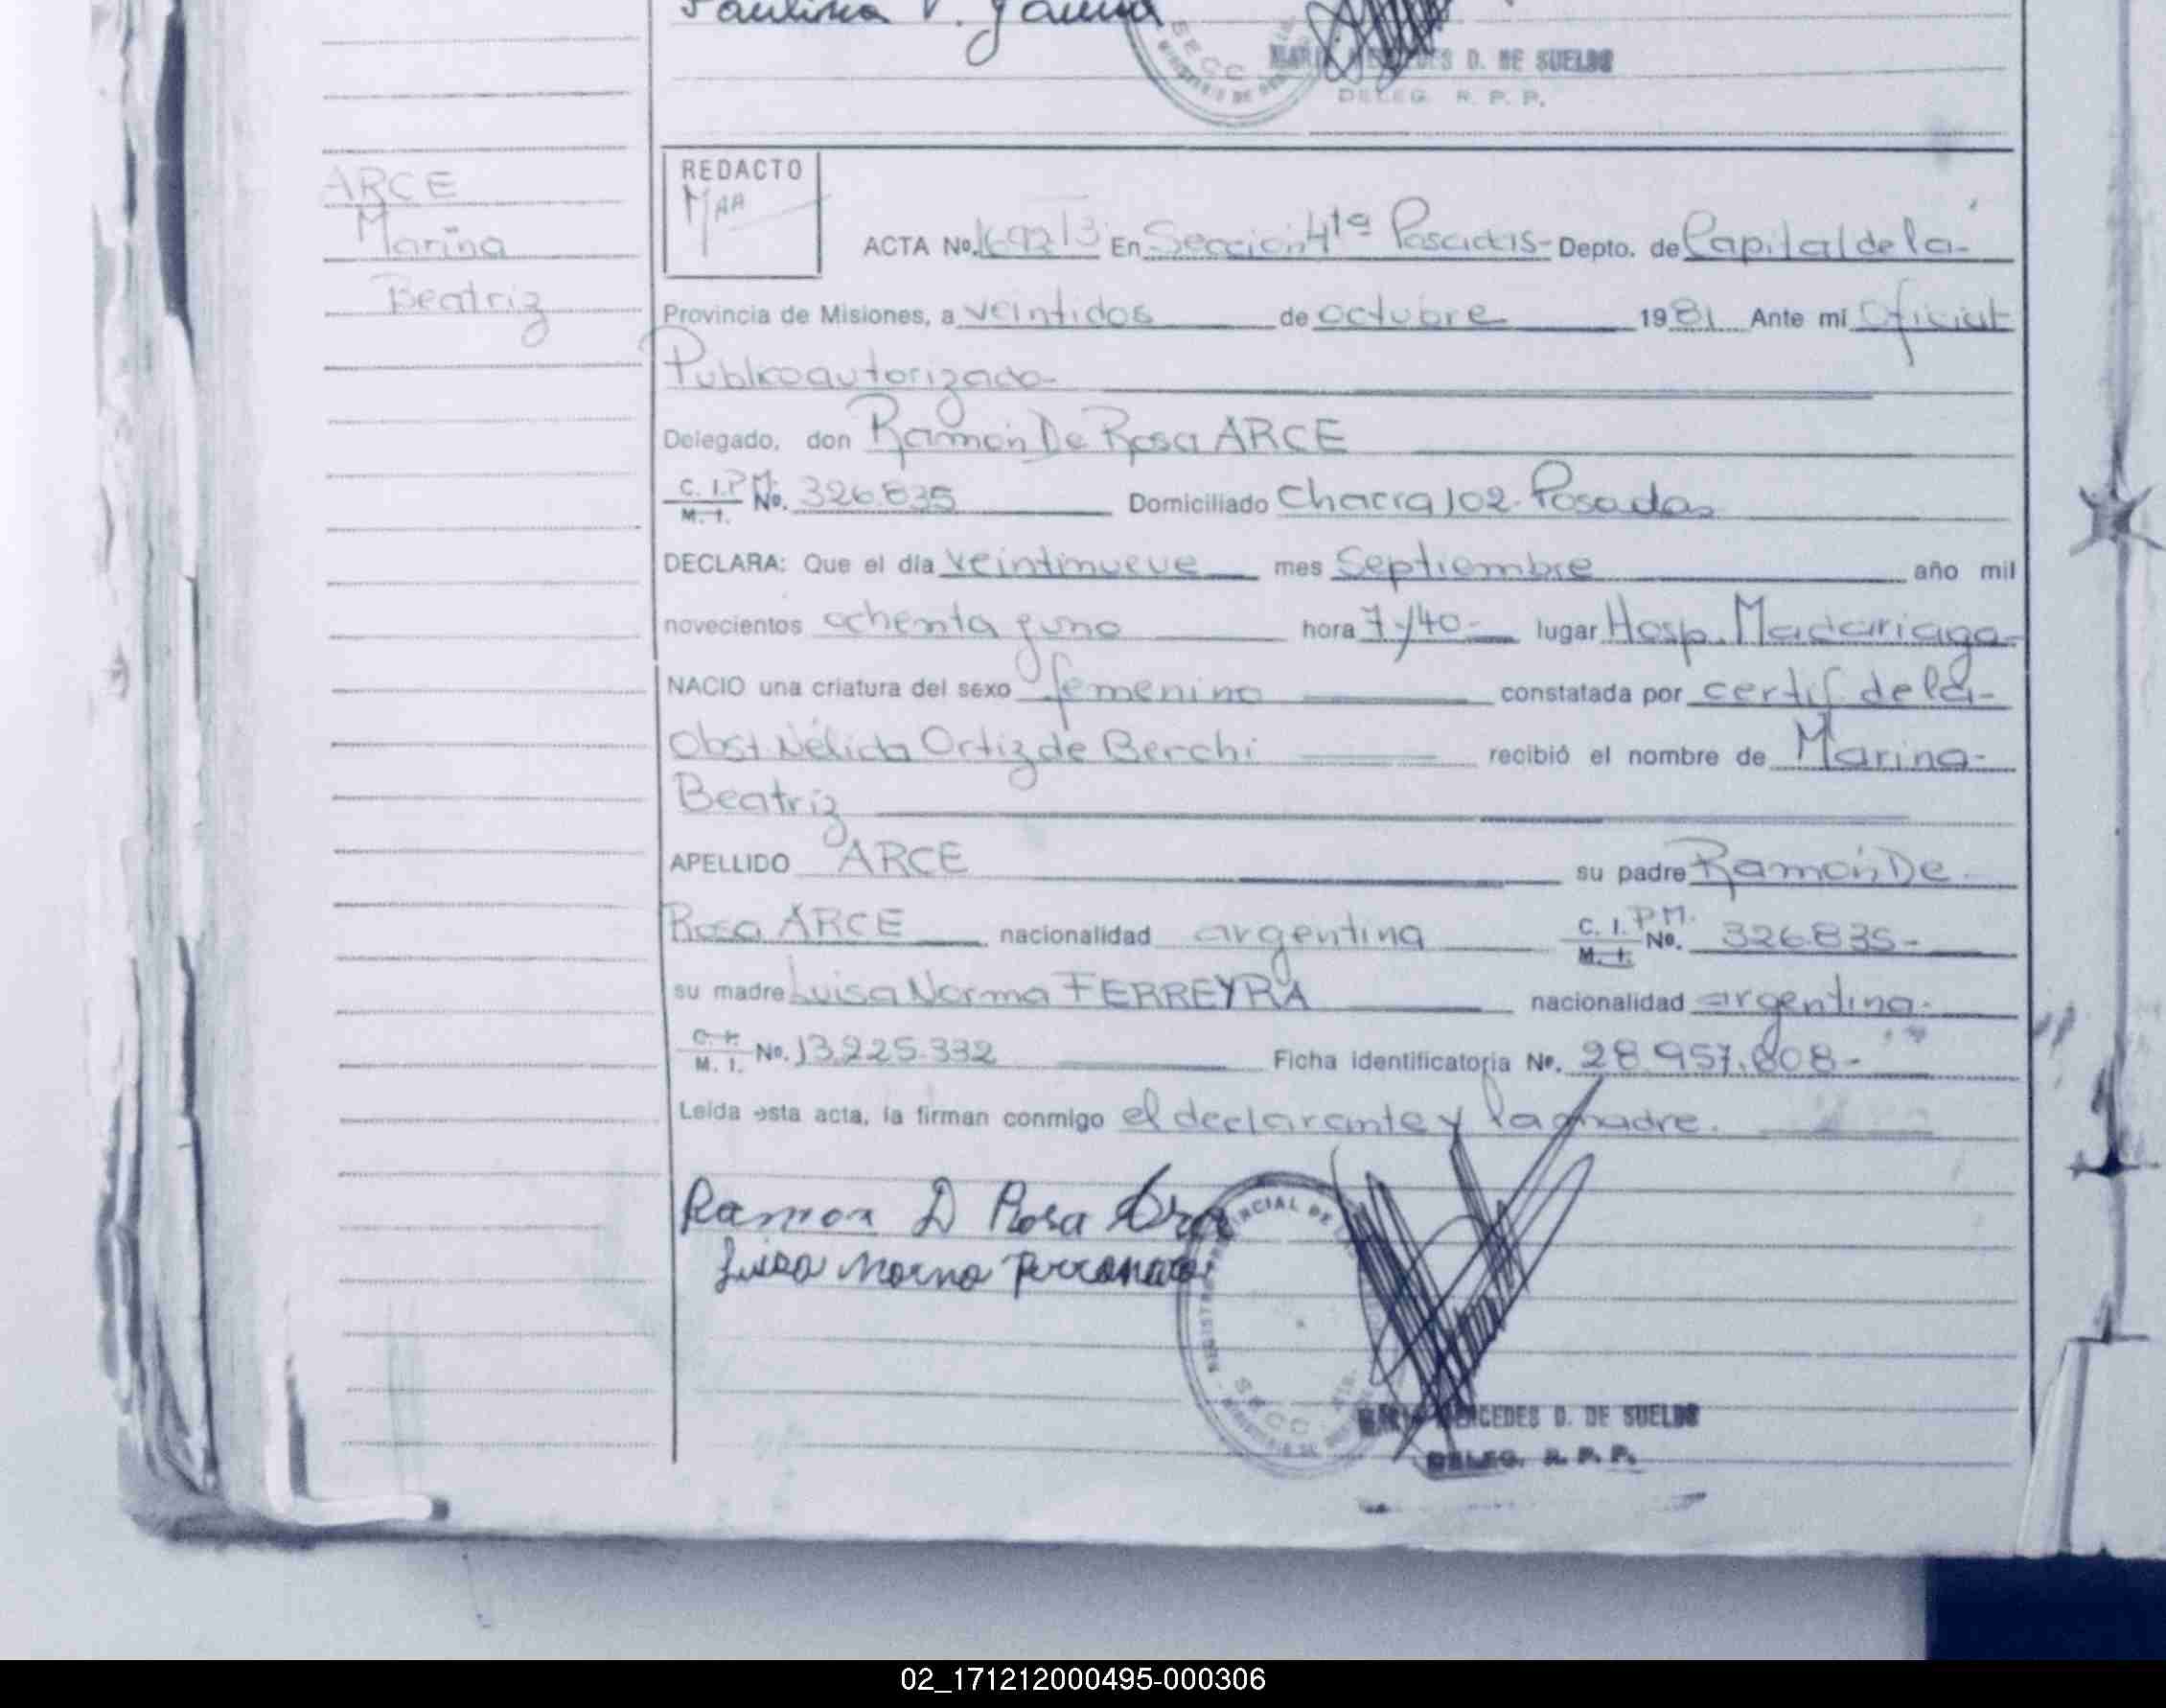 Paulina V.
SECC
MARIA MERCEDES D. DE SUELDO
DELEG. R. P. P.
ARCE
Marina
Beatriz
REDACTO
MAA
ACTA Nº. 1692 T3 En Seccion 4ta Posadas- Depto. de Capital de la-
Provincia de Misiones, a veintidos de octubre 1981 Ante mi Oficial
Publico autorizado-
Delegado, don Ramón De Rosa ARCE
C. I. P.M. M. I. No. 326.835 Domiciliado Chacra 102- Posadas
DECLARA: Que el día veintinueve mes Septiembre año mil
novecientos ochenta y uno hora 7/40- lugar Hosp. Madariaga-
NACIO una criatura del sexo femenino constatada por certif de la-
Obst Nélida Ortiz de Berchi recibió el nombre de Marina-
Beatriz
APELLIDO ARCE su padre Ramón De
Rosa ARCE nacionalidad argentina C. I. P.M. M. I. No. 326.835-
su madre Luisa Norma FERREYRA nacionalidad argentina-
C. I. M. I. No. 13.225.332 Ficha identificatoria No. 28.957.808-
Leida esta acta, la firman conmigo el declarante y la madre.
Ramon D Rosa Arce
Luisa Norma
REGISTRO PROVINCIAL DE LAS
SECC
MARIA MERCEDES D. DE SUELDO
DELEG. R. P. P.
02_171212000495-000306